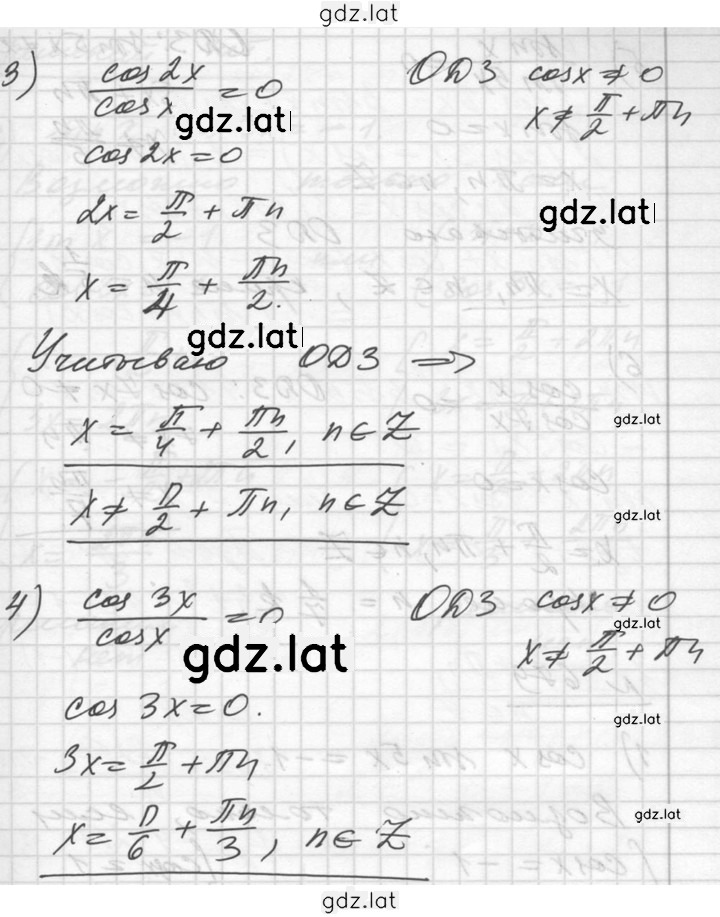 gdz.lat
3) cos2x/cosx = 0 ОДЗ cosx ≠ 0
x ≠ π/2 + πn
gdz.lat
cos2x = 0
2x = π/2 + πn
gdz.lat
x = π/4 + πn/2.
gdz.lat
Учитываю ОДЗ ⇒
x = π/4 + πn/2, n ∈ Z
gdz.lat
x ≠ π/2 + πn, n ∈ Z
gdz.lat
4) cos 3x/cosx = 0 ОДЗ cosx ≠ 0
gdz.lat
x ≠ π/2 + πn
gdz.lat
cos 3x = 0.
gdz.lat
3x = π/2 + πn
x = π/6 + πn/3, n ∈ Z
gdz.lat
gdz.lat